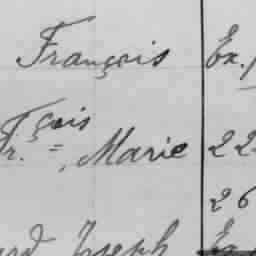 François Ex.
Fçois
Fr. = , Marie 22
26
Joseph Ex